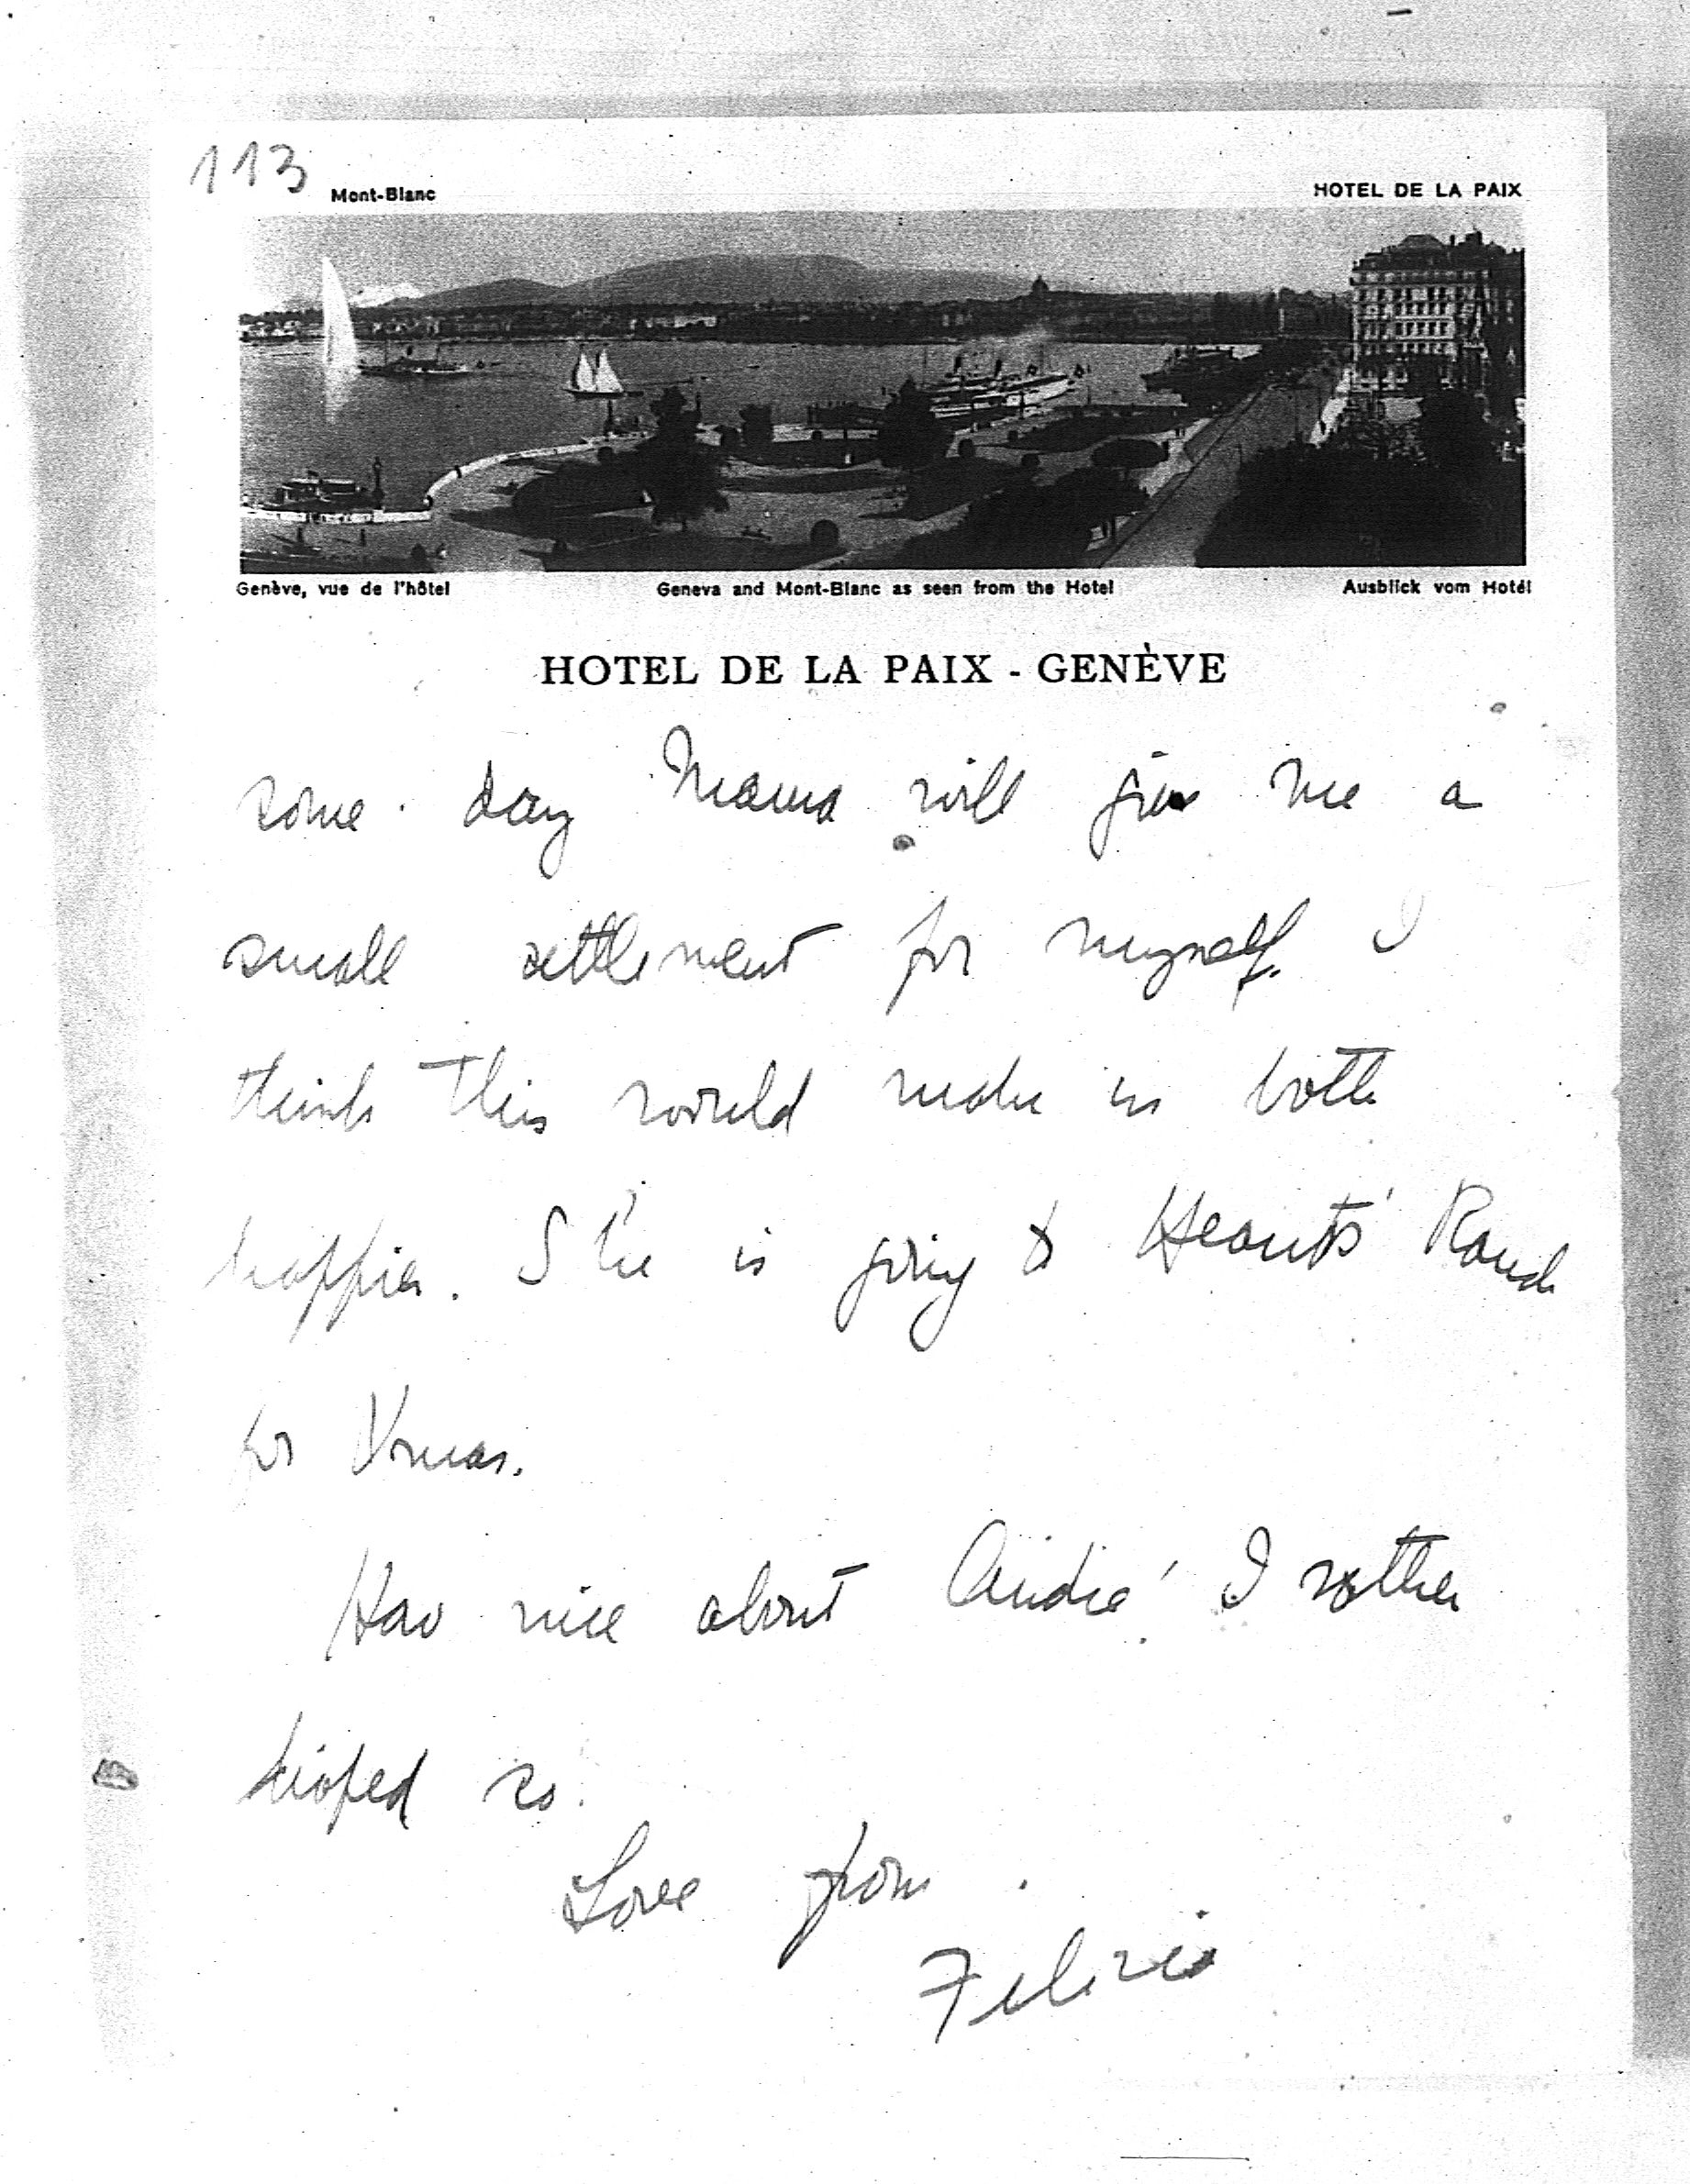 113
Mont-Blanc
HOTEL DE LA PAIX
Genève, vue de l'hôtel
Geneva and Mont-Blanc as seen from the Hotel
Ausblick vom Hotél
HOTEL DE LA PAIX - GENÈVE
some day Mama will give me a
small settlement for myself. I
think this would make us both
happier. She is going to Hearsts' Ranch
for Xmas.
How nice about I rather
hoped so.
Love from